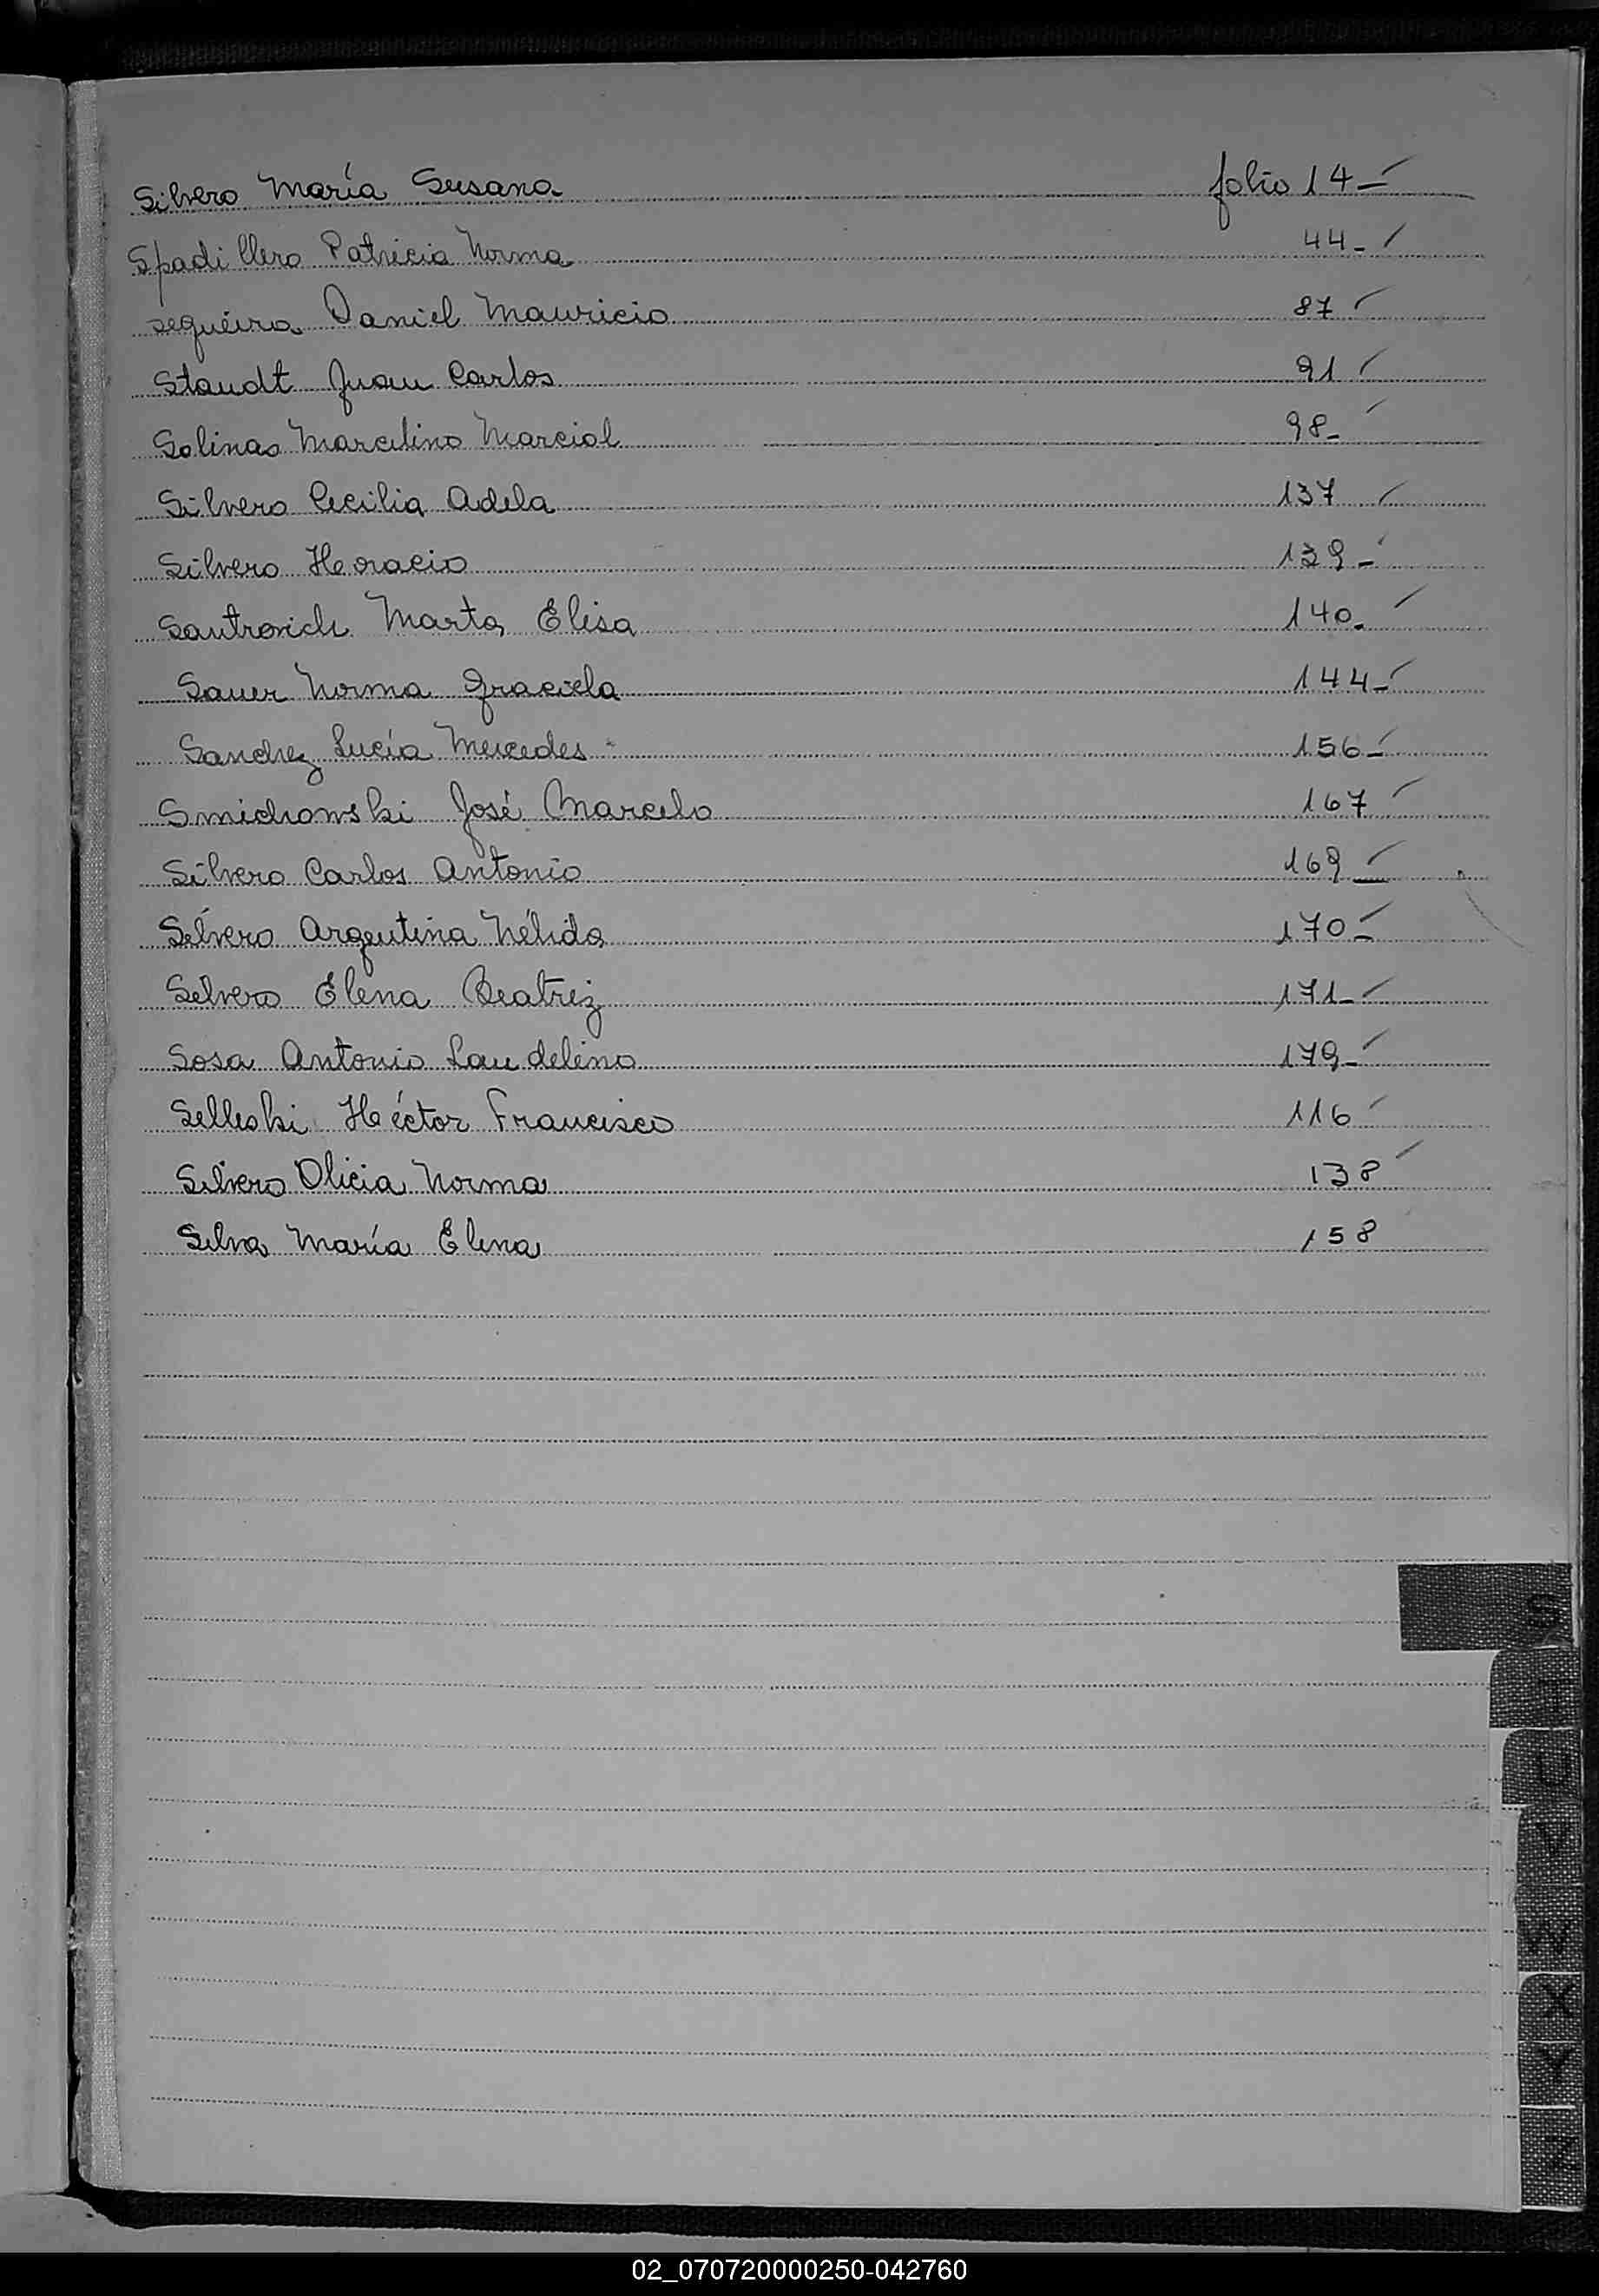 Silvero María Susana folio 14 -
Spadillero Patricia Norma 44 -
sequeira Daniel Mauricio 87
Staudt Juan Carlos 91
Salinas Marcelino Marcial 98 -
Silvero Cecilia Adela 137
Silvero Horacio 139 -
Sautrovich Marta Elisa 140.
Sauer Norma Graciela 144 -
Sanchez Lucía Mercedes 156 -
Smichowski José Marcelo 167
Silvero Carlos Antonio 169 -
Silvero Argentina Nélida 170 -
Silvero Elena Beatriz 171 -
Sosa Antonio Laudelino 179 -
Selleski Héctor Francisco 116
Silvero Olicia Norma 138
Silva María Elena 158
S
T
U
V
W
X
Y
Z
02_070720000250-042760